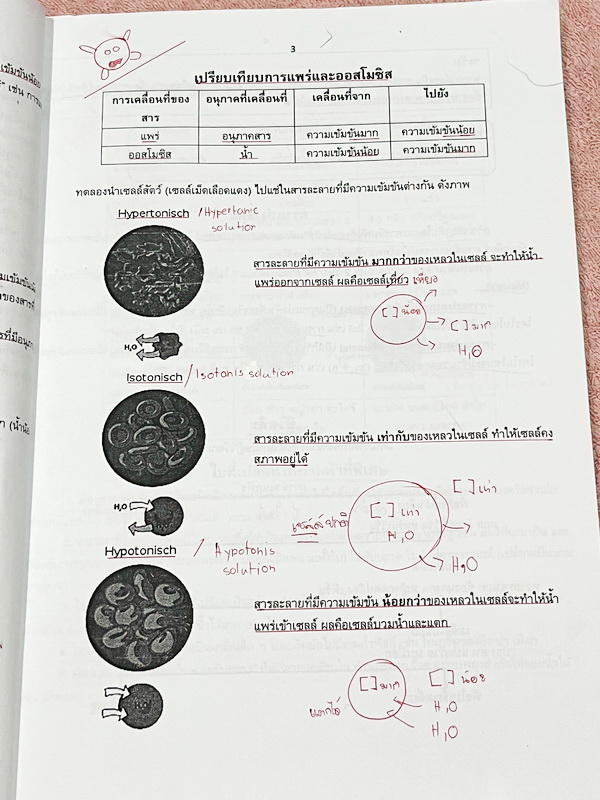 3
เปรียบเทียบการแพร่และออสโมซิส
การเคลื่อนที่ของสาร อนุภาคที่เคลื่อนที่ เคลื่อนที่จาก ไปยัง
แพร่ อนุภาคสาร ความเข้มข้นมาก ความเข้มข้นน้อย
ออสโมซิส น้ำ ความเข้มข้นน้อย ความเข้มข้นมาก
ทดลองนำเซลล์สัตว์ (เซลล์เม็ดเลือดแดง) ไปแช่ในสารละลายที่มีความเข้มข้นต่างกัน ดังภาพ
Hypertonisch / Hypertonic
solution
สารละลายที่มีความเข้มข้น มากกว่าของเหลวในเซลล์ จะทำให้น้ำ
แพร่ออกจากเซลล์ ผลคือเซลล์เหี่ยว เหี่ยว
[ ] น้อย
[ ] มาก
H2O
H2O
Isotonisch / Isotonis solution
สารละลายที่มีความเข้มข้น เท่ากับของเหลวในเซลล์ ทำให้เซลล์คง
สภาพอยู่ได้
[ ] เท่า
[ ] เท่า
H2O
H2O
เซลล์ปกติ
H2O
Hypotonisch / Hypotonis
solution
สารละลายที่มีความเข้มข้น น้อยกว่าของเหลวในเซลล์จะทำให้น้ำ
แพร่เข้าเซลล์ ผลคือเซลล์บวมน้ำและแตก
[ ] มาก
[ ] น้อย
H2O
แตกได้
H2O